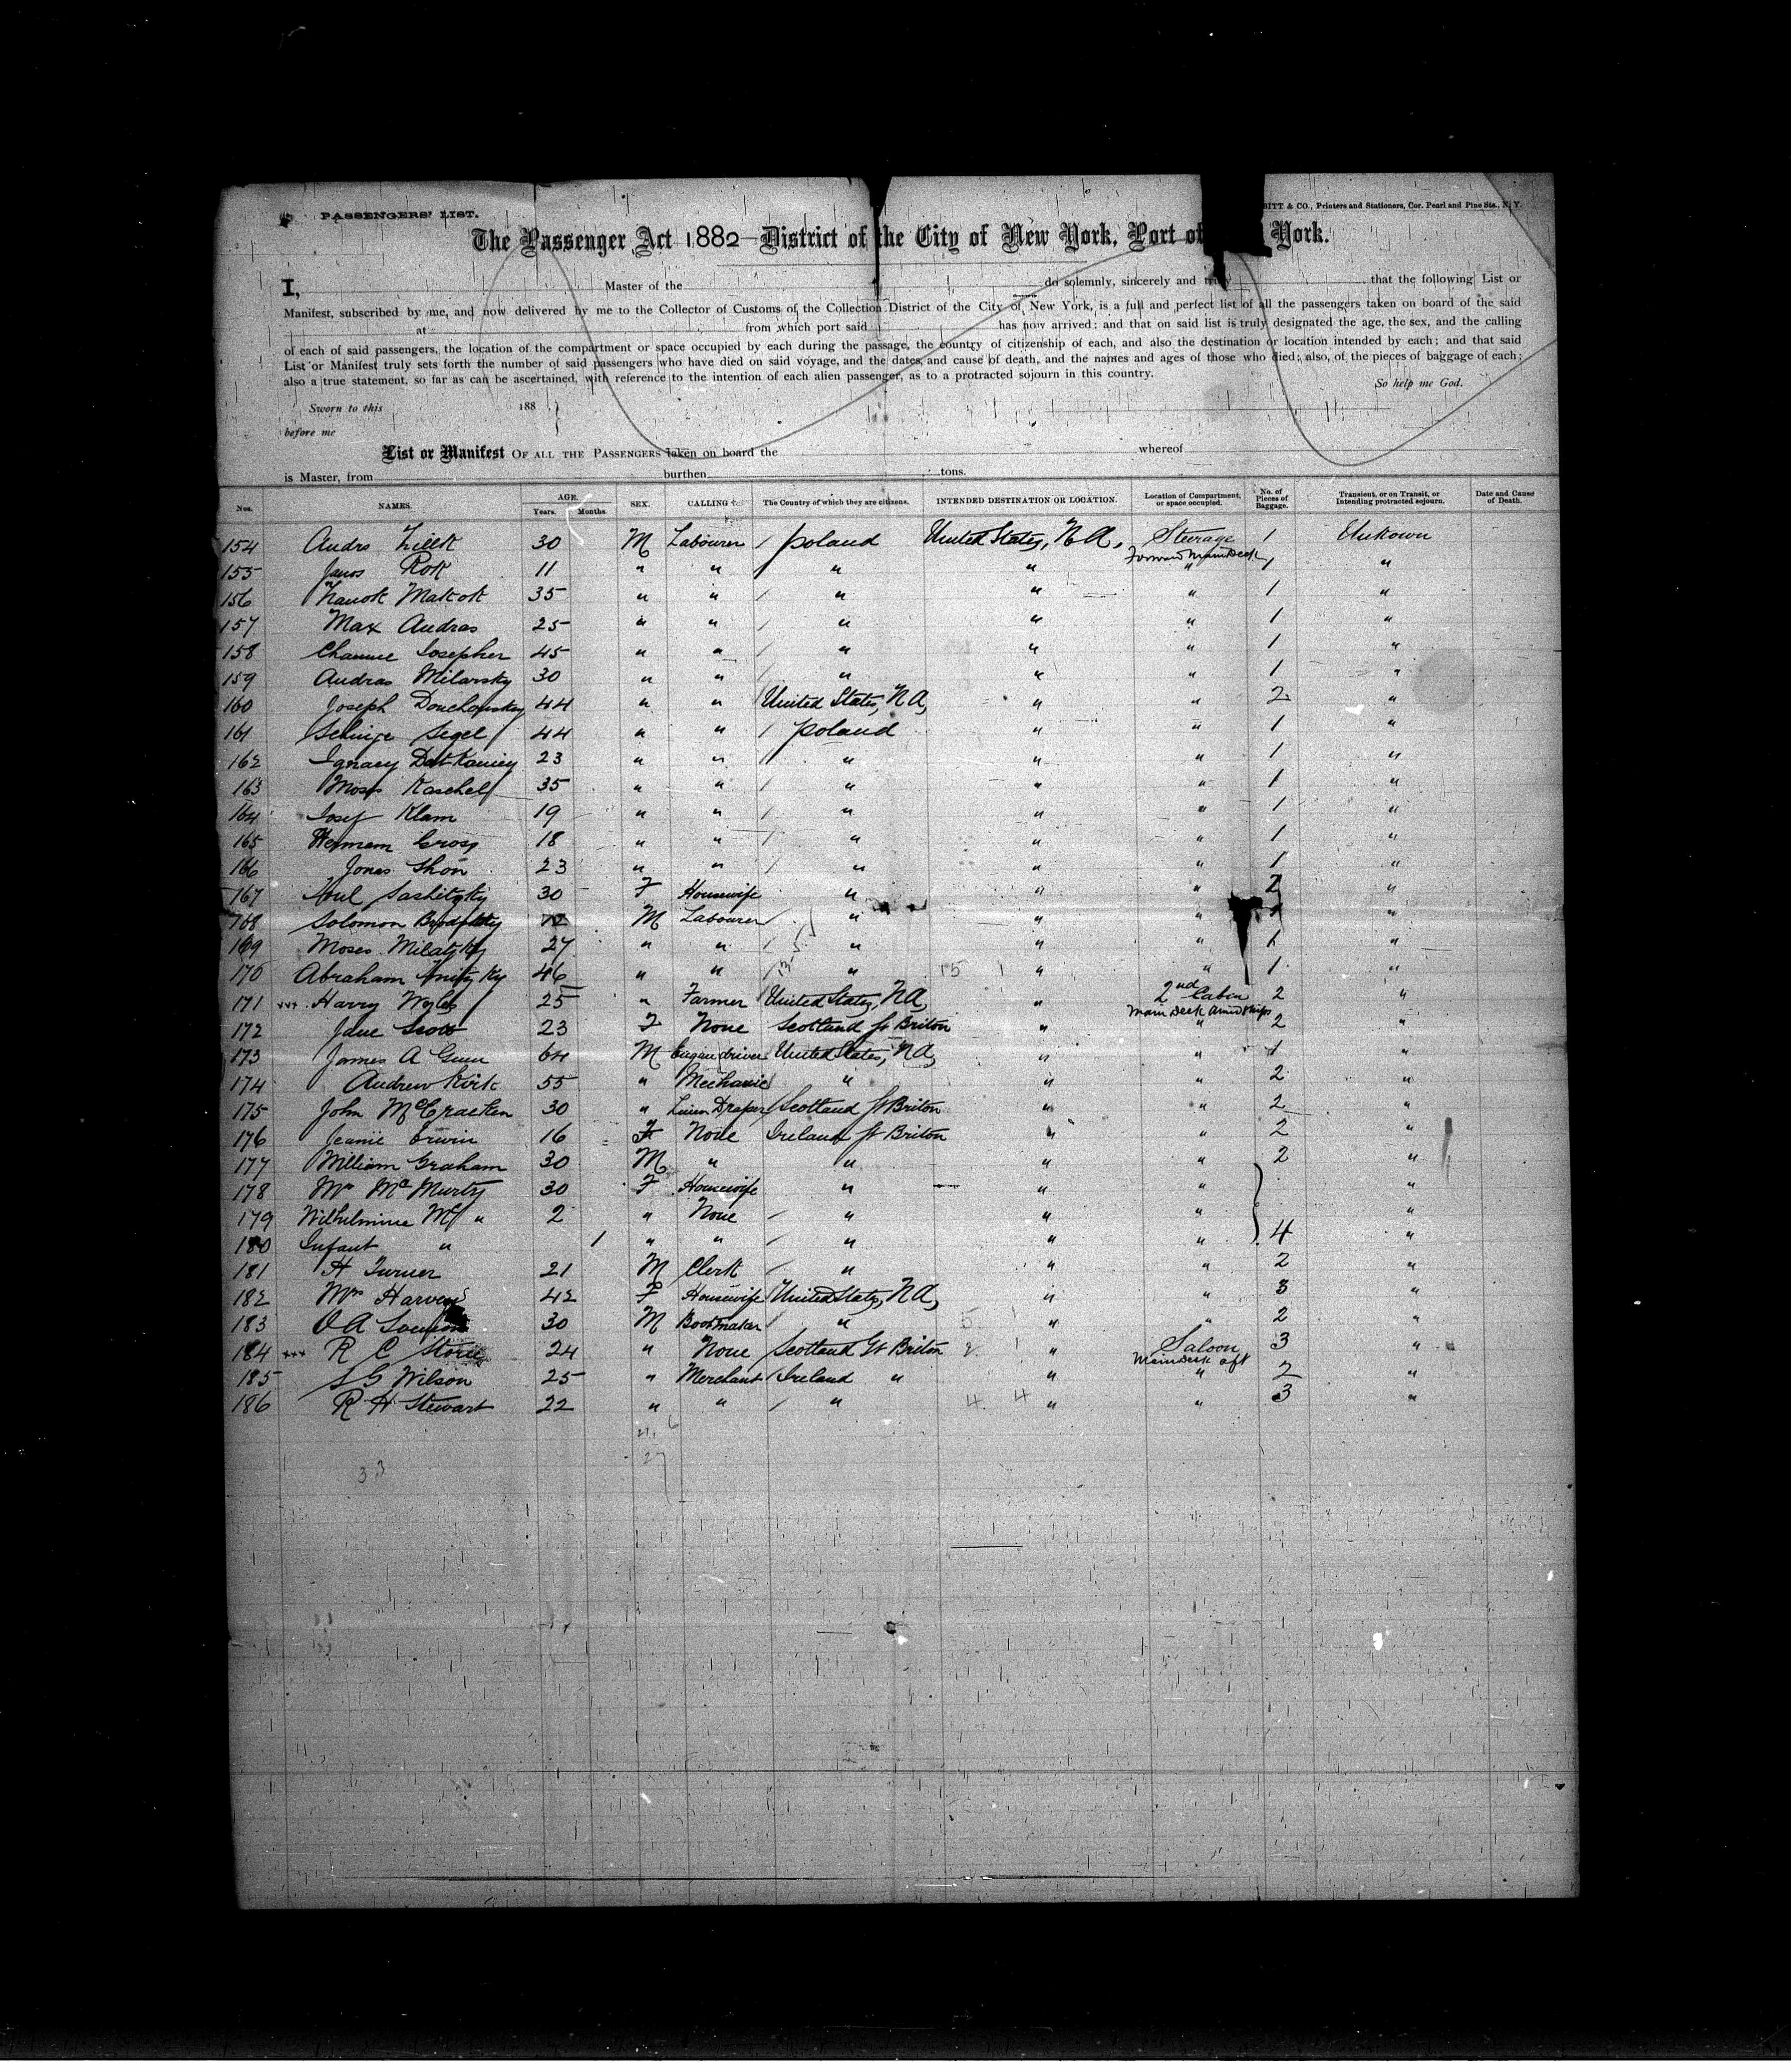 PASSENGERS' LIST.
BITT & CO., Printers and Stationers, Cor. Pearl and Pine Sts., N. Y.
The Passenger Act 1882 District of the City of New York, Port of York.
I, Master of the do solemnly, sincerely and that the following List or
Manifest, subscribed by me, and now delivered by me to the Collector of Customs of the Collection District of the City of New York, is a full and perfect list of all the passengers taken on board of the said
at from which port said has now arrived; and that on said list is truly designated the age, the sex, and the calling
of each of said passengers, the location of the compartment or space occupied by each during the passage, the country of citizenship of each, and also the destination or location intended by each; and that said
List or Manifest truly sets forth the number of said passengers who have died on said voyage, and the dates and cause of death, and the names and ages of those who died; also, of the pieces of baggage of each;
also a true statement, so far as can be ascertained, with reference to the intention of each alien passenger, as to a protracted sojourn in this country. So help me God.
Sworn to this 188
before me
List or Manifest OF ALL THE PASSENGERS taken on board the whereof
is Master, from burthen tons.
Nos. NAMES. AGE. Years. Months. SEX. CALLING The Country of which they are citizens. INTENDED DESTINATION OR LOCATION. Location of Compartment, or space occupied. No. of Pieces of Baggage. Transient, or on Transit, or Intending protracted sojourn. Date and Cause of Death.
154 Andrs 30 M Labourer / Poland United States, N A, Steerage Forward Main Deck 1
155 Janos Rok 11 " " / " " " 1 "
156 Makok 35 " " / " " " 1 "
157 Max Andras 25 " " / " " " 1 "
158 Josepher 45 " " / " " " 1 "
159 Andras Milarsky 30 " " / " " " 1 "
160 Joseph 44 " " United States, N A, " " 2 "
161 Segel 44 " " / Poland " " 1 "
162 Ignacy 23 " " / " " " 1 "
163 Moses Kaschel 35 " " / " " " 1 "
164 Josef Klam 19 " " / " " " 1 "
165 Hermem Gross 18 " " / " " " 1 "
166 Jones Shon 23 " " / " " " 1 "
167 30 F Housewife " " " 2 "
168 Solomon M Labourer / " " " "
169 Moses Milatzky 27 " " / " " " 1 "
170 Abraham 46 " " / " " " 1 "
171 Harry 25 " Farmer United States, N A, " 2nd Cabin Main Deck Amidships 2 "
172 Jane Scott 23 F None Scotland Gt Briton " " 2 "
173 James A Gunn 64 M Engine driver United States, N A, " " 1 "
174 Andrew Kirk 55 " Mechanic " " " 2 "
175 John McCracken 30 " Linen Draper / Scotland Gt Briton " " 2 "
176 Jeanie Erwin 16 F None Ireland Gt Briton " " 2 "
177 William Graham 30 M " " " " 2 "
178 Mrs McMurty 30 F Housewife " " " "
179 Wilhilmine Mc " 2 " None / " " " "
180 Infant " 1 " " / " " " 4 "
181 H Turner 21 M Clerk / " " " 2 "
182 Mrs 42 F Housewife United States, N A, " " 3 "
183 30 M Bootmaker " " " 2 "
184 R C 24 " None Scotland Gt Briton " Saloon Main Deck aft 3 "
185 S G Wilson 25 " Merchant / Ireland " " " 2 "
186 R H Stewart 22 " " / " 4 4 " " 3 "
33